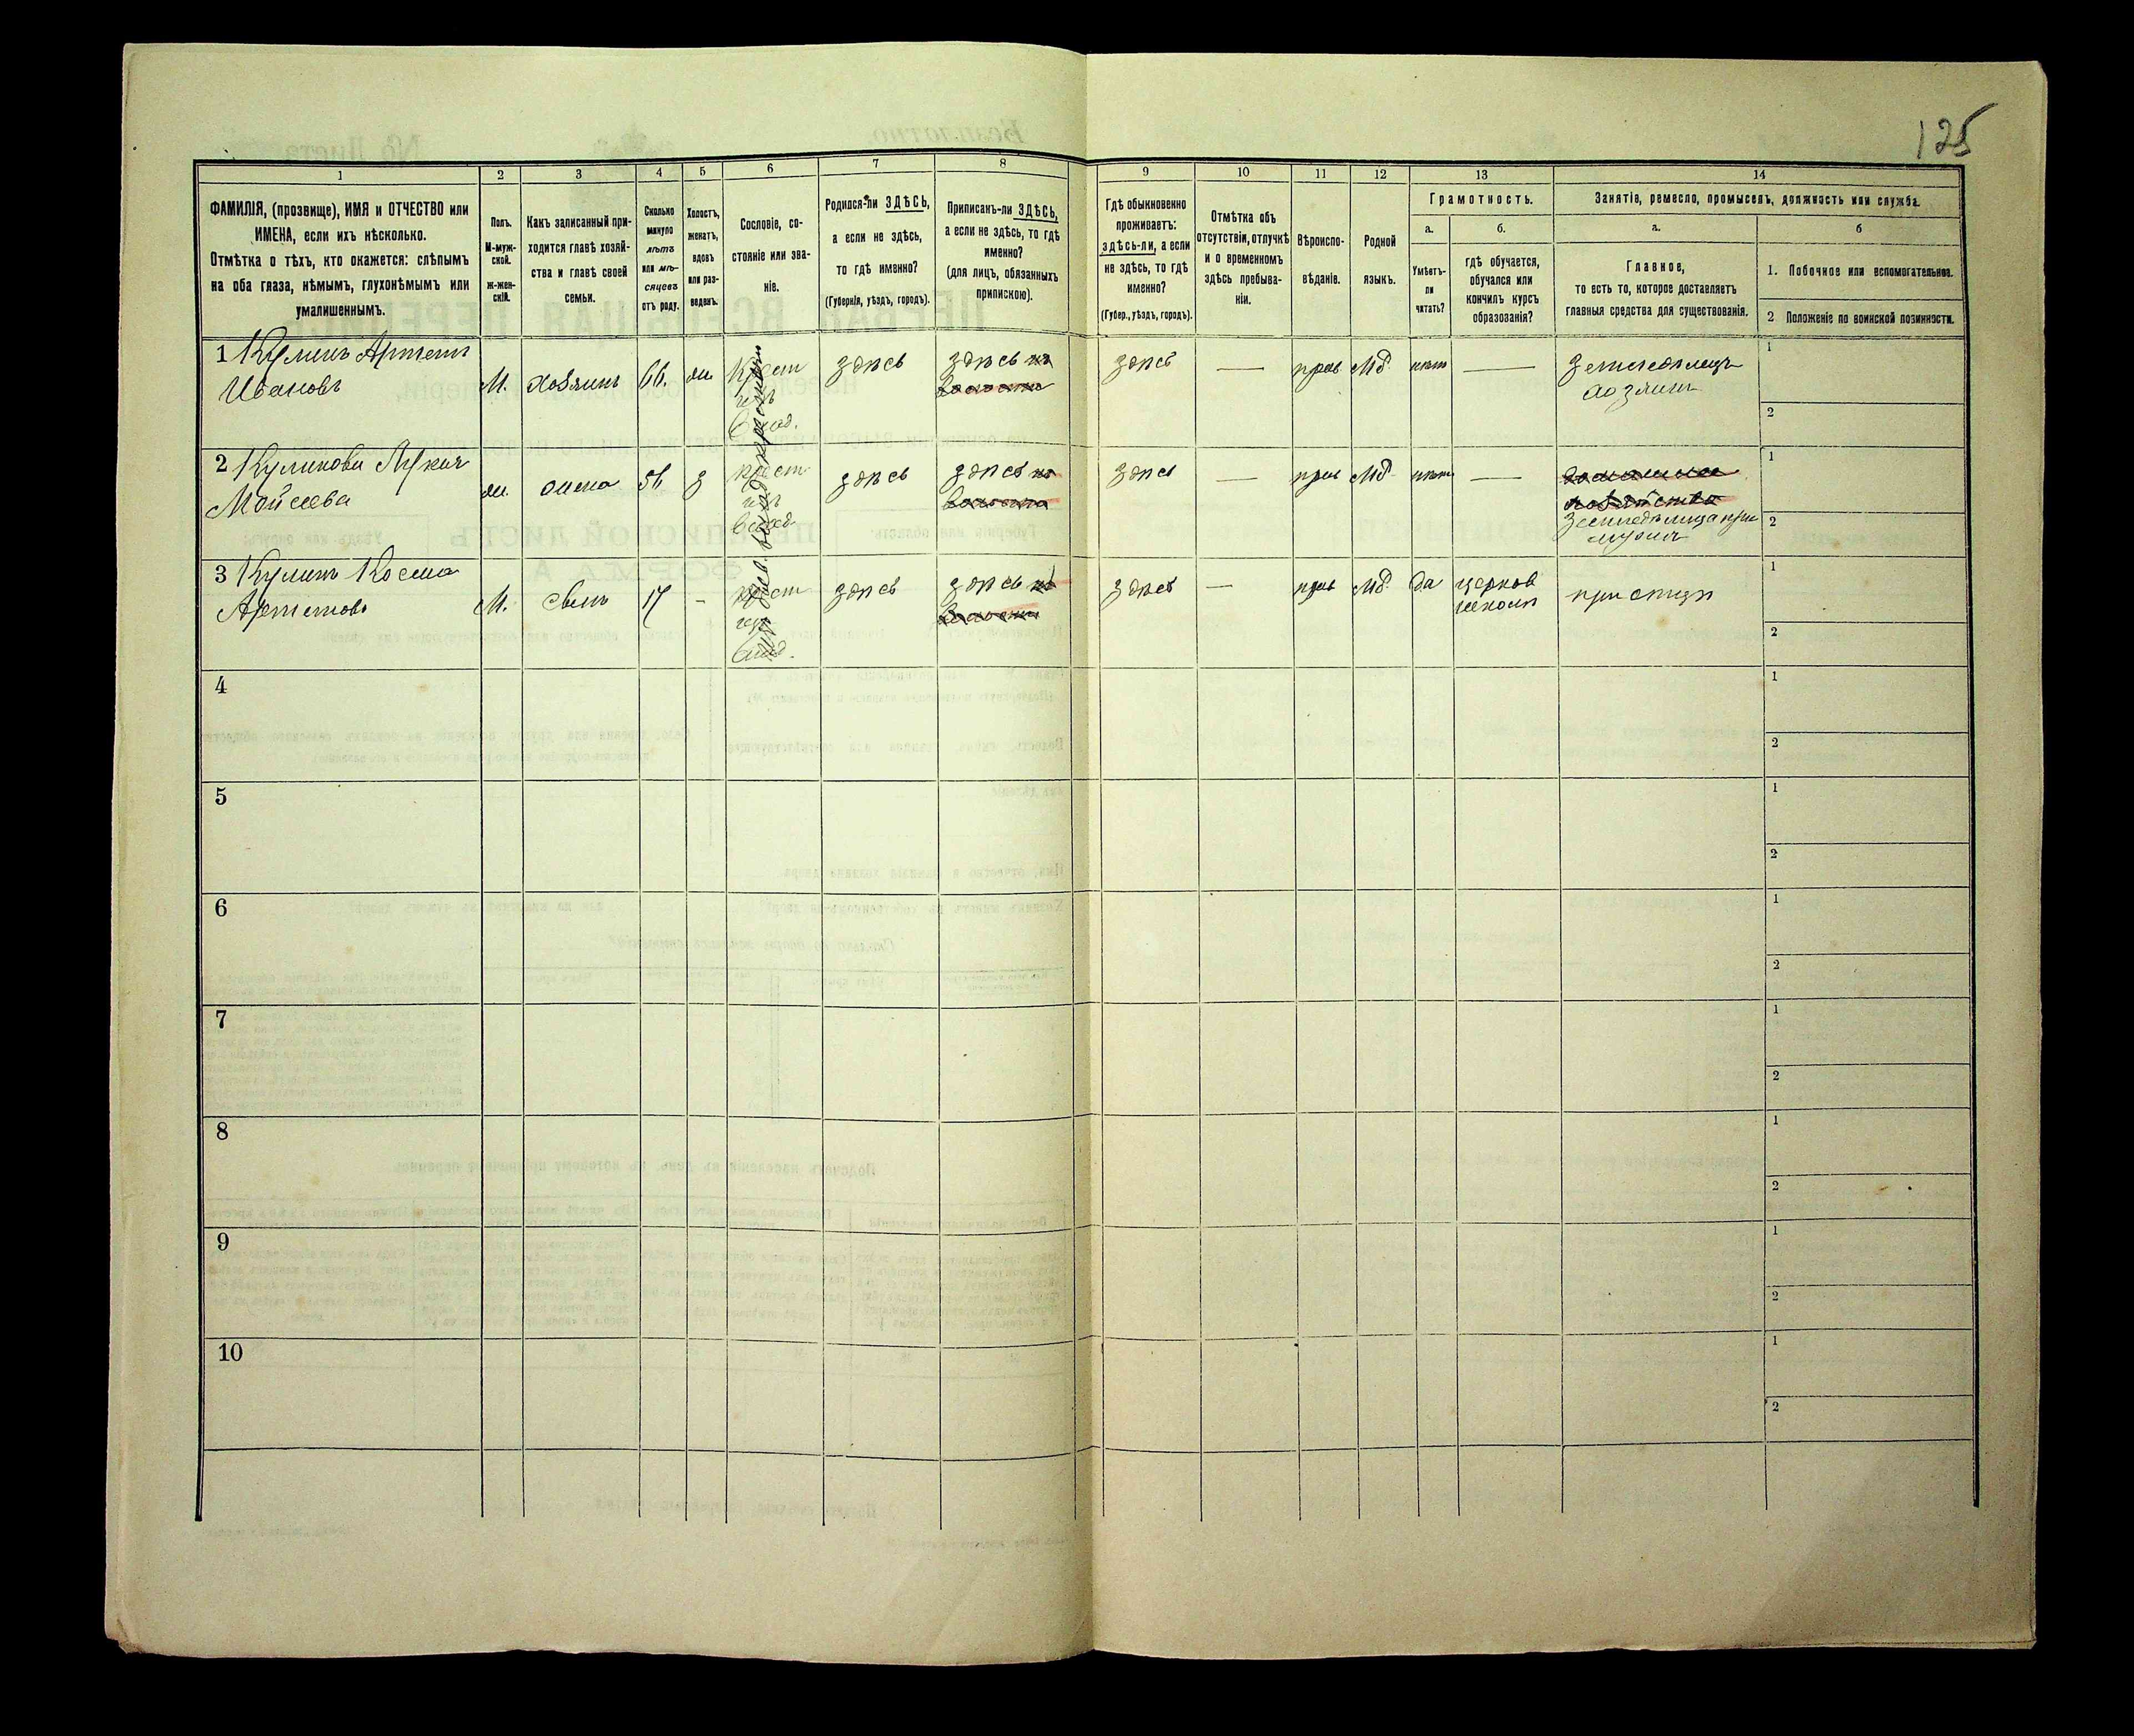 125
1
2
3
4
5
6
7
8
9
10
11
12
13
14
ФАМИЛІЯ, (прозвище), ИМЯ и ОТЧЕСТВО или
ИМЕНА, если ихъ нѣсколько.
Отмѣтка о тѣхъ, кто окажется: слѣпымъ
на оба глаза, нѣмымъ, глухонѣмымъ или
умалишеннымъ.
Полъ.
М-муж-
ской.
Ж-жен-
скій.
Какъ записанный при-
ходится главѣ хозяй-
ства и главѣ своей
семьи.
Сколько
минуло
лѣтъ
или мѣ-
сяцевъ
отъ роду.
Холостъ,
женатъ,
вдовъ
или раз-
веденъ.
Сословіе, со-
стояніе или зва-
ніе.
Родился-ли ЗДѢСЬ,
а если не здѣсь,
то гдѣ именно?
(Губернія, уѣздъ, городъ).
Приписанъ-ли ЗДѢСЬ,
а если не здѣсь, то гдѣ
именно?
(для лицъ, обязанныхъ
припискою).
Гдѣ обыкновенно
проживаетъ:
здѣсь-ли, а если
не здѣсь, то гдѣ
именно?
(Губер., уѣздъ, городъ).
Отмѣтка объ
отсутствіи, отлучкѣ
и о временномъ
здѣсь пребыва-
ніи.
Вѣроиспо-
вѣданіе.
Родной
языкъ.
Грамотность.
а.
Умѣетъ-
ли
читать?
б.
гдѣ обучается,
обучался или
кончилъ курсъ
образованія?
Занятіе, ремесло, промыселъ, должность или служба.
а.
Главное,
то есть то, которое доставляетъ
главныя средства для существованія.
б
1. Побочное или вспомогательное.
2 Положеніе по воинской повинности.
1 Кулинъ Артемъ
Ивановъ
М.
хозяинъ
66.
ж.
Крест
изъ
здѣсь
здѣсь
здѣсь
—
прав
Мд.
нѣт
—
земледѣлецъ
хозяинъ
1
2
2 Куликова
Мойсеева
ж.
жена
56
з
крест
изъ
здѣсь
здѣсь
здѣсь
—
прав
Мд.
нѣт
—
при
мужѣ
1
2
3 Кулинъ Косма
Артемовъ
М.
сынъ
17
-
крест
изъ
здѣсь
здѣсь
здѣсь
—
прав
Мд.
да
церков
школѣ
при отцѣ
1
2
4
1
2
5
1
2
6
1
2
7
1
2
8
1
2
9
1
2
10
1
2